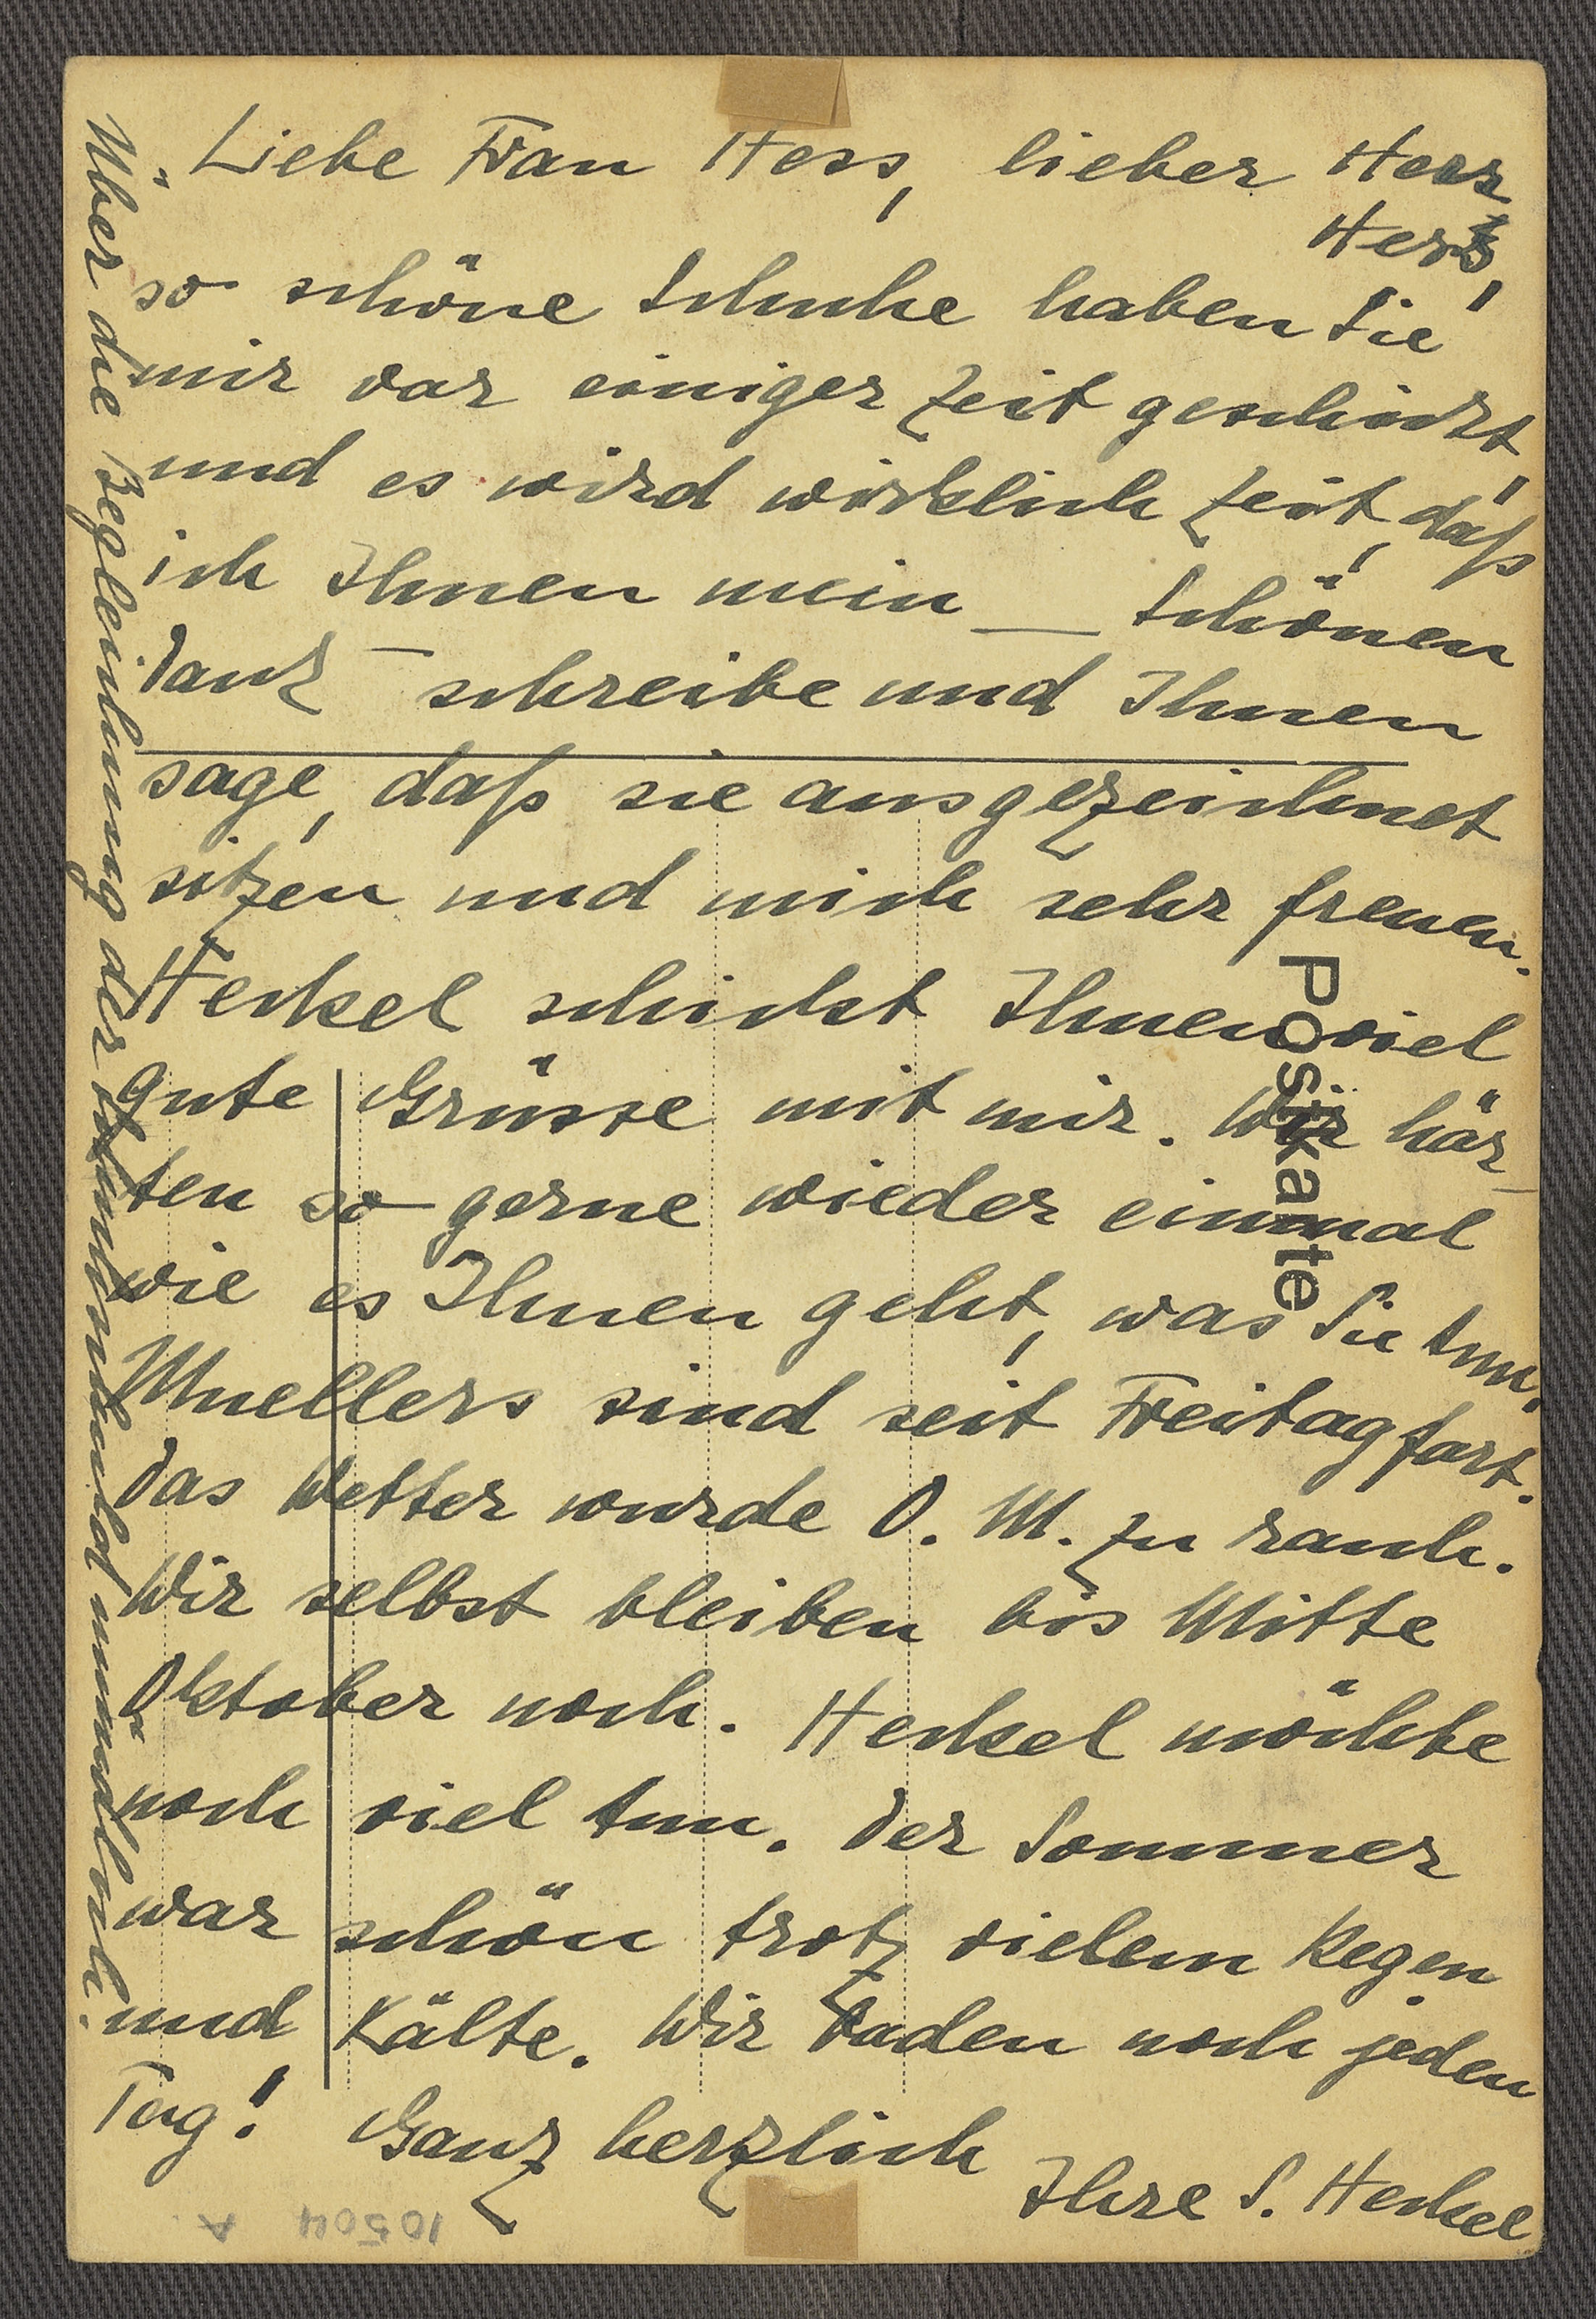 Liebe Frau Hess, lieber Herr
Hess,
so schöne Schuhe haben Sie
mir vor einiger Zeit geschickt,
und es wird wirklich Zeit, daß
ich Ihnen mein — Schönen
Dank — schreibe und Ihnen
sage, daß sie ausgezeichnet
sitzen und mich sehr freuen.
Heckel schickt Ihnen viel
gute Grüsse mit mir. Wir hör-
ten so gerne wieder einmal
wie es Ihnen geht, was Sie tun.
Muellers sind seit Freitag fort.
Das Wetter wurde O. M. zu rauh.
Wir selbst bleiben bis Mitte
Oktober noch. Heckel möchte
noch viel tun. Der Sommer
war schön trotz vielem Regen
und Kälte. Wir baden noch jeden
Tag! Ganz herzlich
Ihre S. Heckel
Über die Begleichung der mündlich.
Postkarte
10504 A